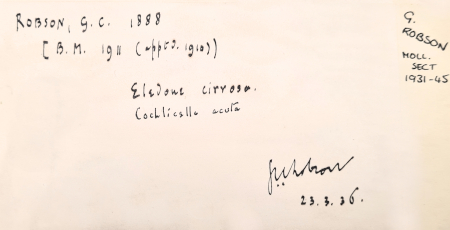 ROBSON, G.C. 1888
[B.M. 1911 (apptd. 1910)]
Eledone cirrosa.
Cochlicella acuta
GCRobson
23.3.36.
G.
ROBSON
MOLL.
SECT
1931-45